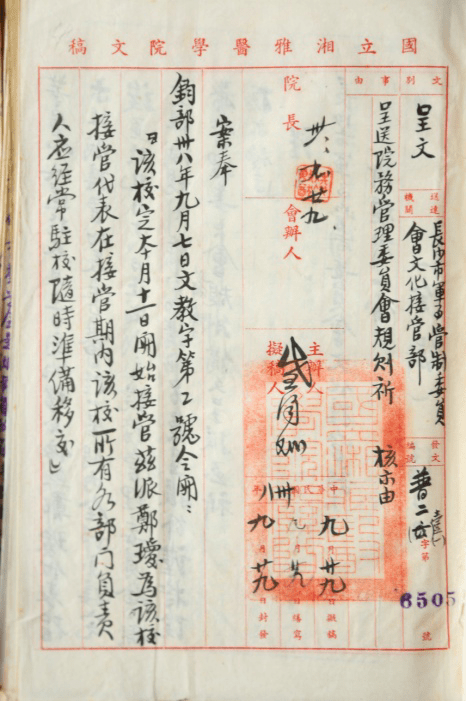 國立湘雅醫學院文稿
文別
呈文
送達機關
長沙市軍事管制委員
會文化接管部
事由
呈送院務管理委員會規則祈 核示由
發文
字第
6505
號
院長
卅、九、廿九、
會辦人
主辦人
擬稿人
九月廿九日擬稿
九月廿九日封發
案奉
鈞部卅八年九月七日文教字第2號令開：
「該校定本月十一日開始接管茲派鄭瓊為該校
接管代表在接管期內該校所有各部門負責
人應經常駐校隨時準備移交」